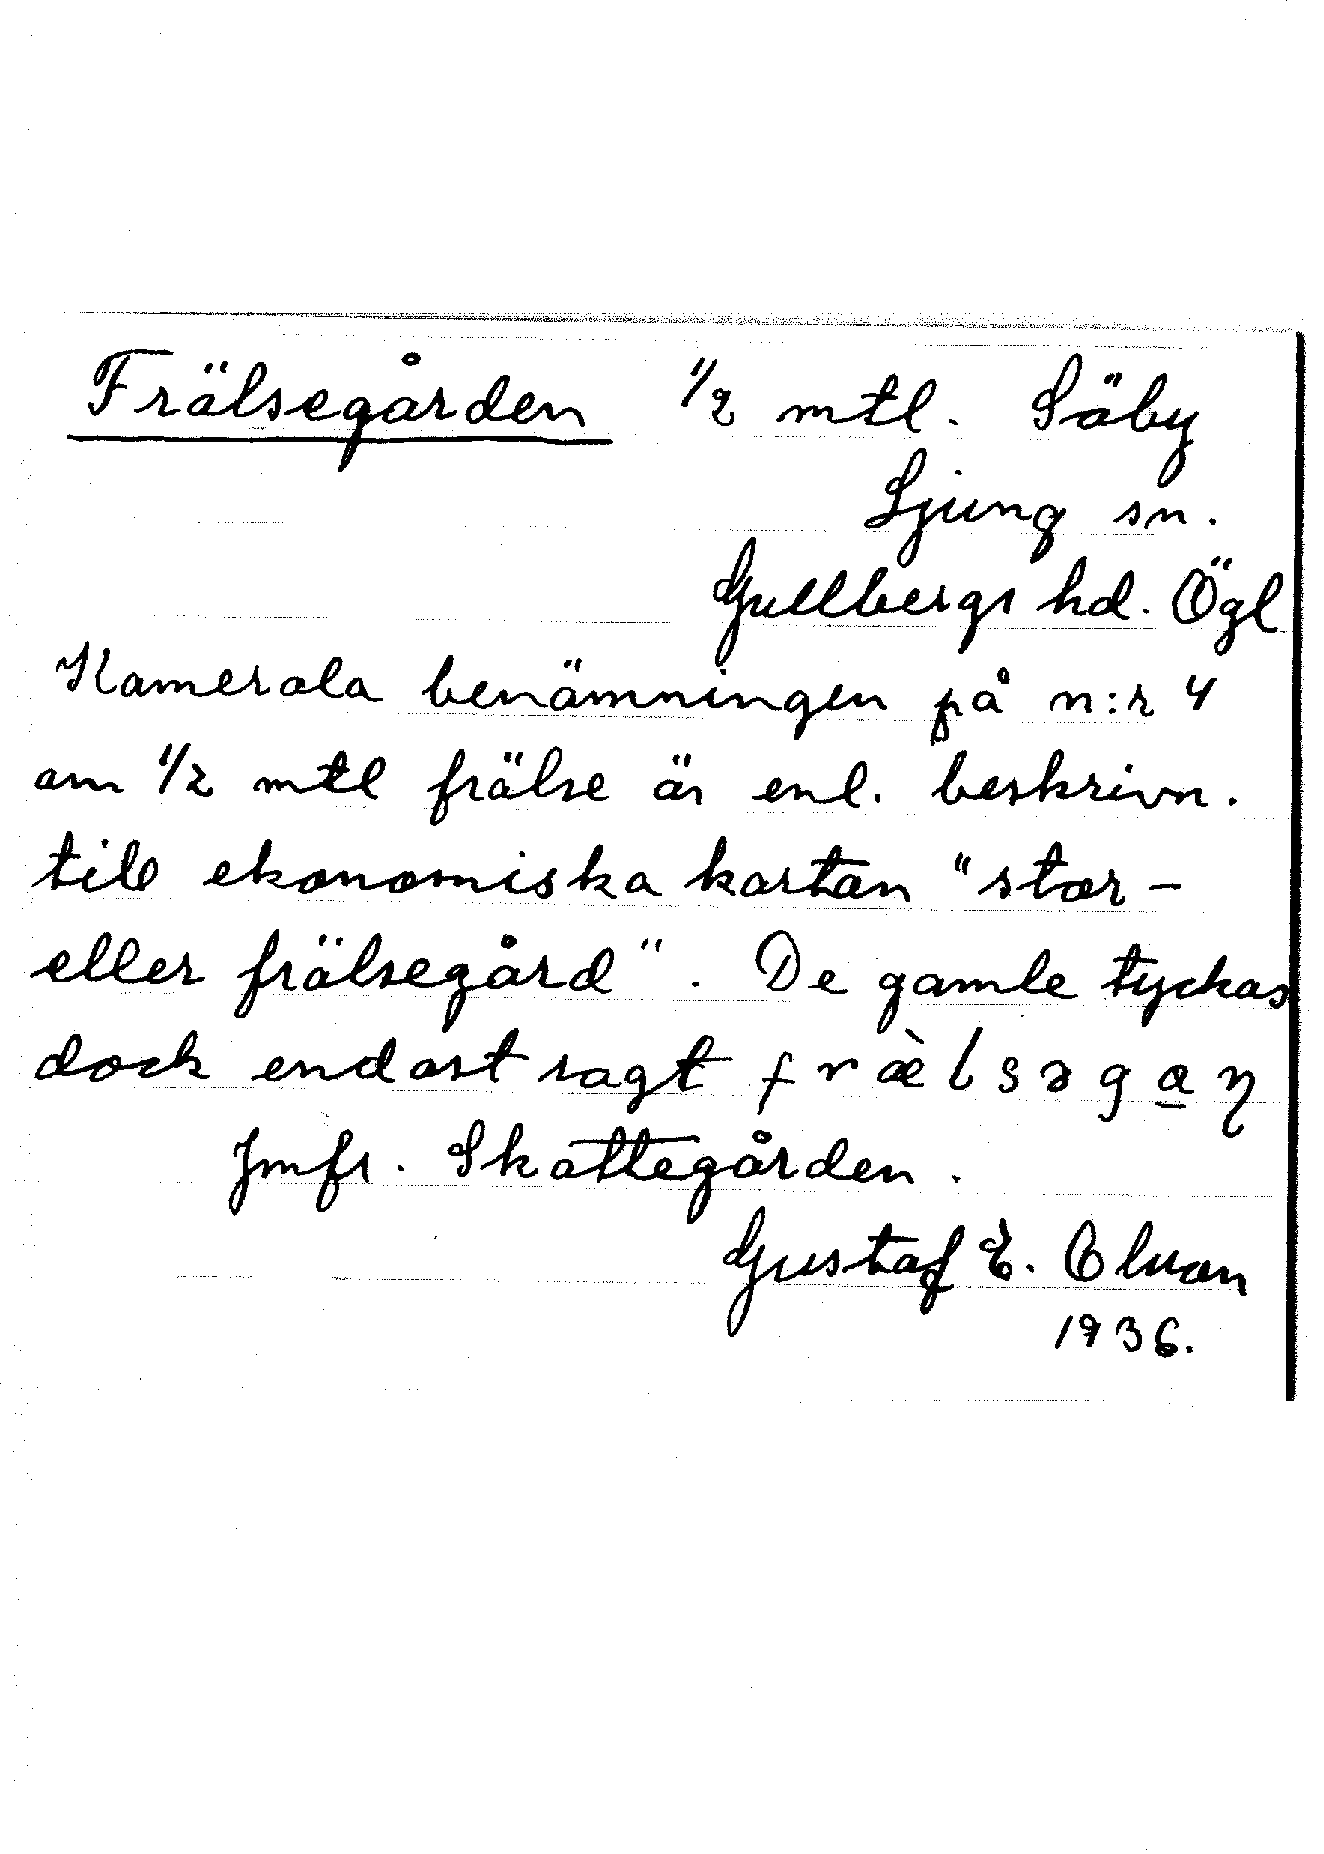 Frälsegården 1/2 mtl. Säby
Ljung sn.
Gullbergs hd. Ögl
Kamerala benämningen på n:r 4
om 1/2 mtl frälse är enl. beskrivn.
till ekonomiska kartan "stor-
eller frälsegård". De gamle tyckas
dock endast sagt fræ̀lsəga̲ɳ
Jmfr. Skattegården.
Gustaf E. Olsson
1936.